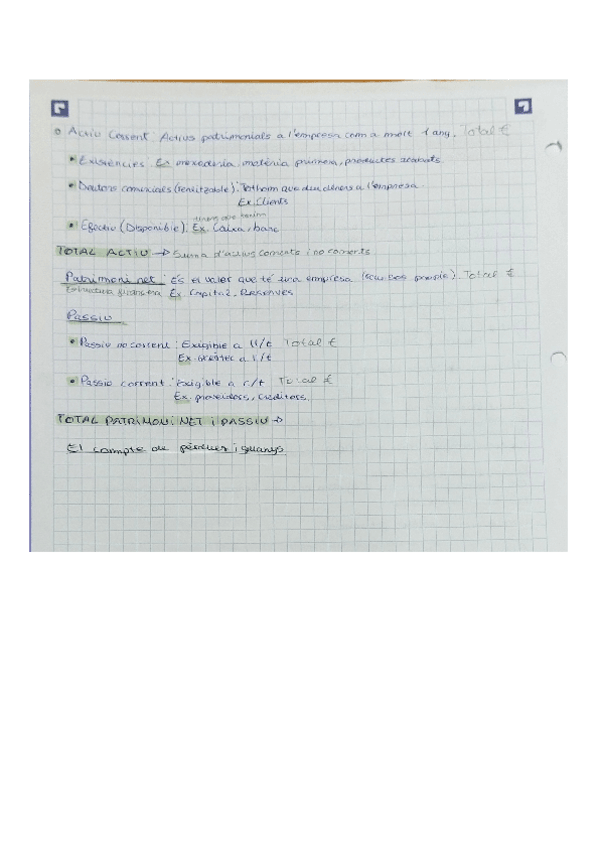 o Actiu Corrent: Actius patrimonials a l'empresa com a molt 1 any. Total €
• Existències. Ex mercaderia, matèria primera, productes acabats.
• Deutors comercials (realitzable): Tothom que deu diners a l'empresa.
Ex. Clients
diners que tenim
• Efectiu (Disponible). Ex. Caixa, banc
TOTAL ACTIU → Suma d'actius corrents i no corrents
Patrimoni net: És el valor que té una empresa (recursos propis). Total €
Estructura financera Ex Capital, Reserves
Passiu
• Passiu no corrent: Exigible a ll/t Total €
Ex. a ll/t
• Passiu corrent: exigible a c/t Total €
Ex. proveïdors, creditors.
TOTAL PATRIMONI NET i PASSIU →
El compte de pèrdues i guanys